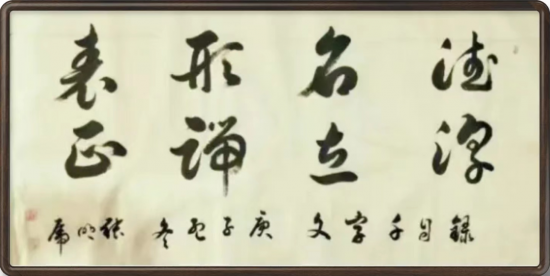 德建
名立
形端
表正
錄自千字文 庚子孟冬 張明